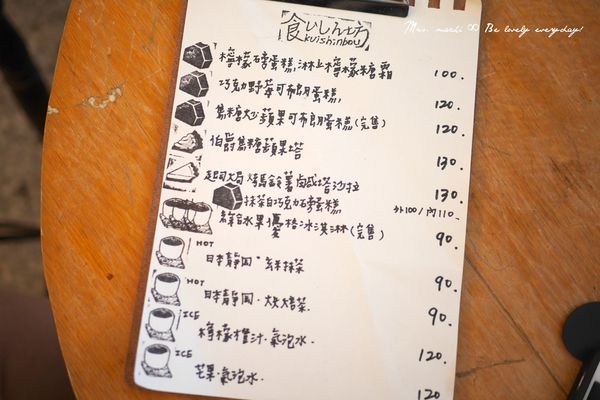 Mrs. nachi ∞ Be lovely everyday!
食いしん坊
kuishinbou
檸檬磅蛋糕,淋上檸檬糖霜 100.
巧克力野莓可布朗蛋糕, 120.
焦糖大沙蘋果可布朗蛋糕(完售) 120.
伯爵焦糖蘋果塔 130.
起司火焗烤馬鈴薯鹹塔沙拉 130.
抹茶白巧克力磅蛋糕 外100/內110.
綜合水果優格冰淇淋(完售) 90.
HOT 日本靜岡·玄米抹茶 90.
HOT 日本靜岡·炊焙茶. 90.
ICE 檸檬橙汁·氣泡水. 120.
ICE 芒果·氣泡水. 120